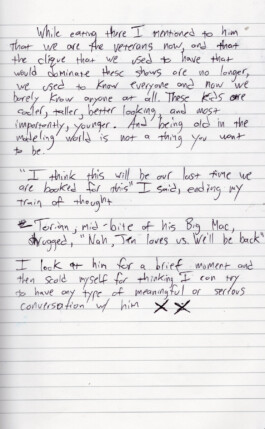 While eating there I mentioned to him
that we are the veterans now, and that
the clique that we used to have that
would dominate these shows are no longer,
we used to know everyone and now we
barely know anyone at all. These kids are
cooler, taller, better looking, and most
importantly, younger. And being old in the
modeling world is not a thing you want
to be.
"I think this will be our last time we
are booked for this" I said, ending my
train of thought
Torinn, mid-bite of his Big Mac,
shrugged, "Nah, Jen loves us. We'll be back"
I look at him for a brief moment and
then scold myself for thinking I can try
to have any type of meaningful or serious
conversation w/ him X X